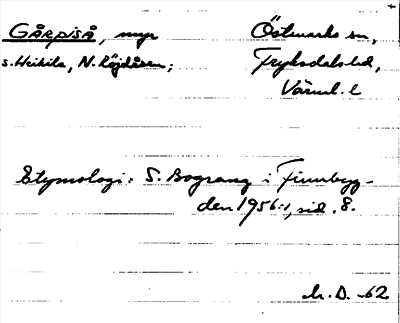 GÅRPISÅ, myr
Östmarks sn,
s. Heikila, N. Röjdåsen;
Fryksdals hd,
Värml. l
Etymologi: S. Bograng i Finnbyg-
den 1956:1, sid. 8.
D. -62